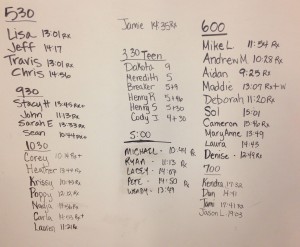 530
Lisa 13:01 Rx
Jeff 14:17
Travis 13:01
Chris 14:56
930
Stacy H 13:45 Rx+
John 11:13 Rx
Sarah E 13:33 Rx
Sean 10:44 Rx+
1030
Corey
Heather
Krissy
Poppy
Nadia
Carla
Lauren
Jamie 14:35 Rx
3:30 Teen
Dakota 9
Meredith 5
Braxer 5+9
Henry R 5+16
Henry S 5+30
Cody J 4+30
5:00
MICHAEL - 10:41 Rx
RYAN - 11:13 Rx
LACEY - 14:07
PETE - 14:50 Rx
WHADY - 13:49
600
Mike L 11:54 Rx
Andrew M 10:28 Rx
Aidan 9:25 Rx
Maddie 13:07 Rx+W
Deborah 11:20 Rx
Sol 13:01
Cameron 13:40 Rx
MaryAnne 13:49
Laura 14:43
Denise 12:49 Rx
700
Kendra 17:12 Rx
Dan
Jami 17:41 Rx
Jason L